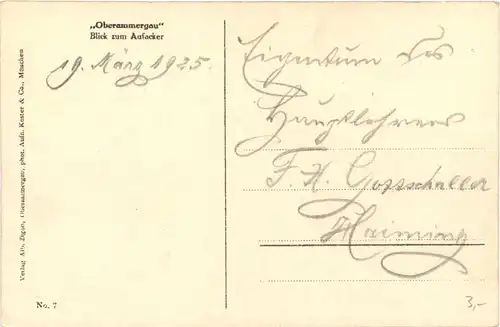 „Oberammergau"
Blick zum Aufacker
19. März 1925.
Eigentum des
Hauptlehrers
F. X. Gottschaller
Haiming
Verlag Alb. Zigan, Oberammergau, phot. Aufn. Kester & Co., München
No. 7
3,-